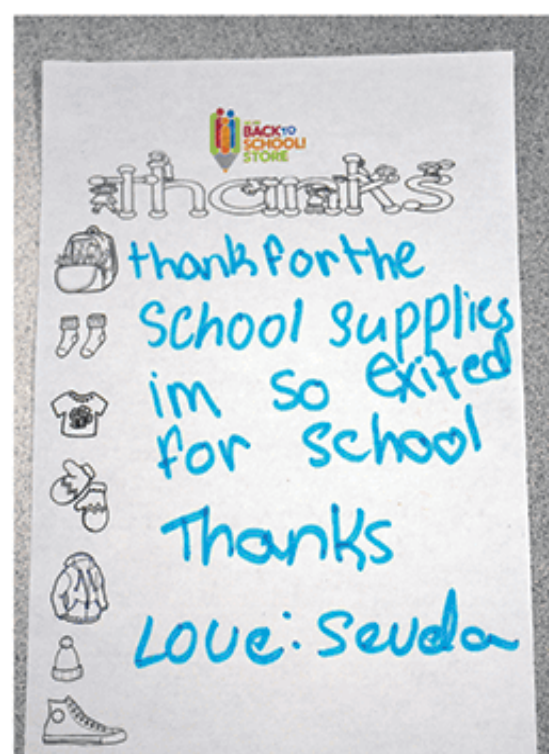 BACK TO
SCHOOL!
STORE
thanks
thank for the
School supplies
im so exited
for school
Thanks
Love: Sevda